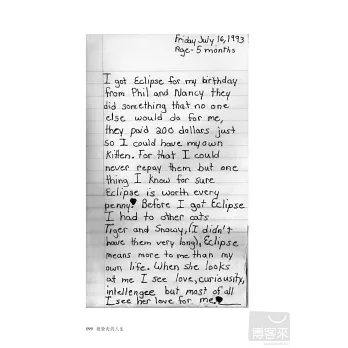 Friday July 16, 1993
Age- 5 months
I got Eclipse for my birthday
from Phil and Nancy they
did something that no one
else would do for me,
they paid 200 dollars just
so I could have my own
Kitten. For that I could
never repay them but one
thing I know for sure
Eclipse is worth every
penny! Before I got Eclipse
I had to other cats
Tiger and Snowy, (I didn't
have them very long), Eclipse
means more to me than my
own life. When she looks
at me I see love, curiousity,
intellengee but most of all
I see her love for me.
099
博客來